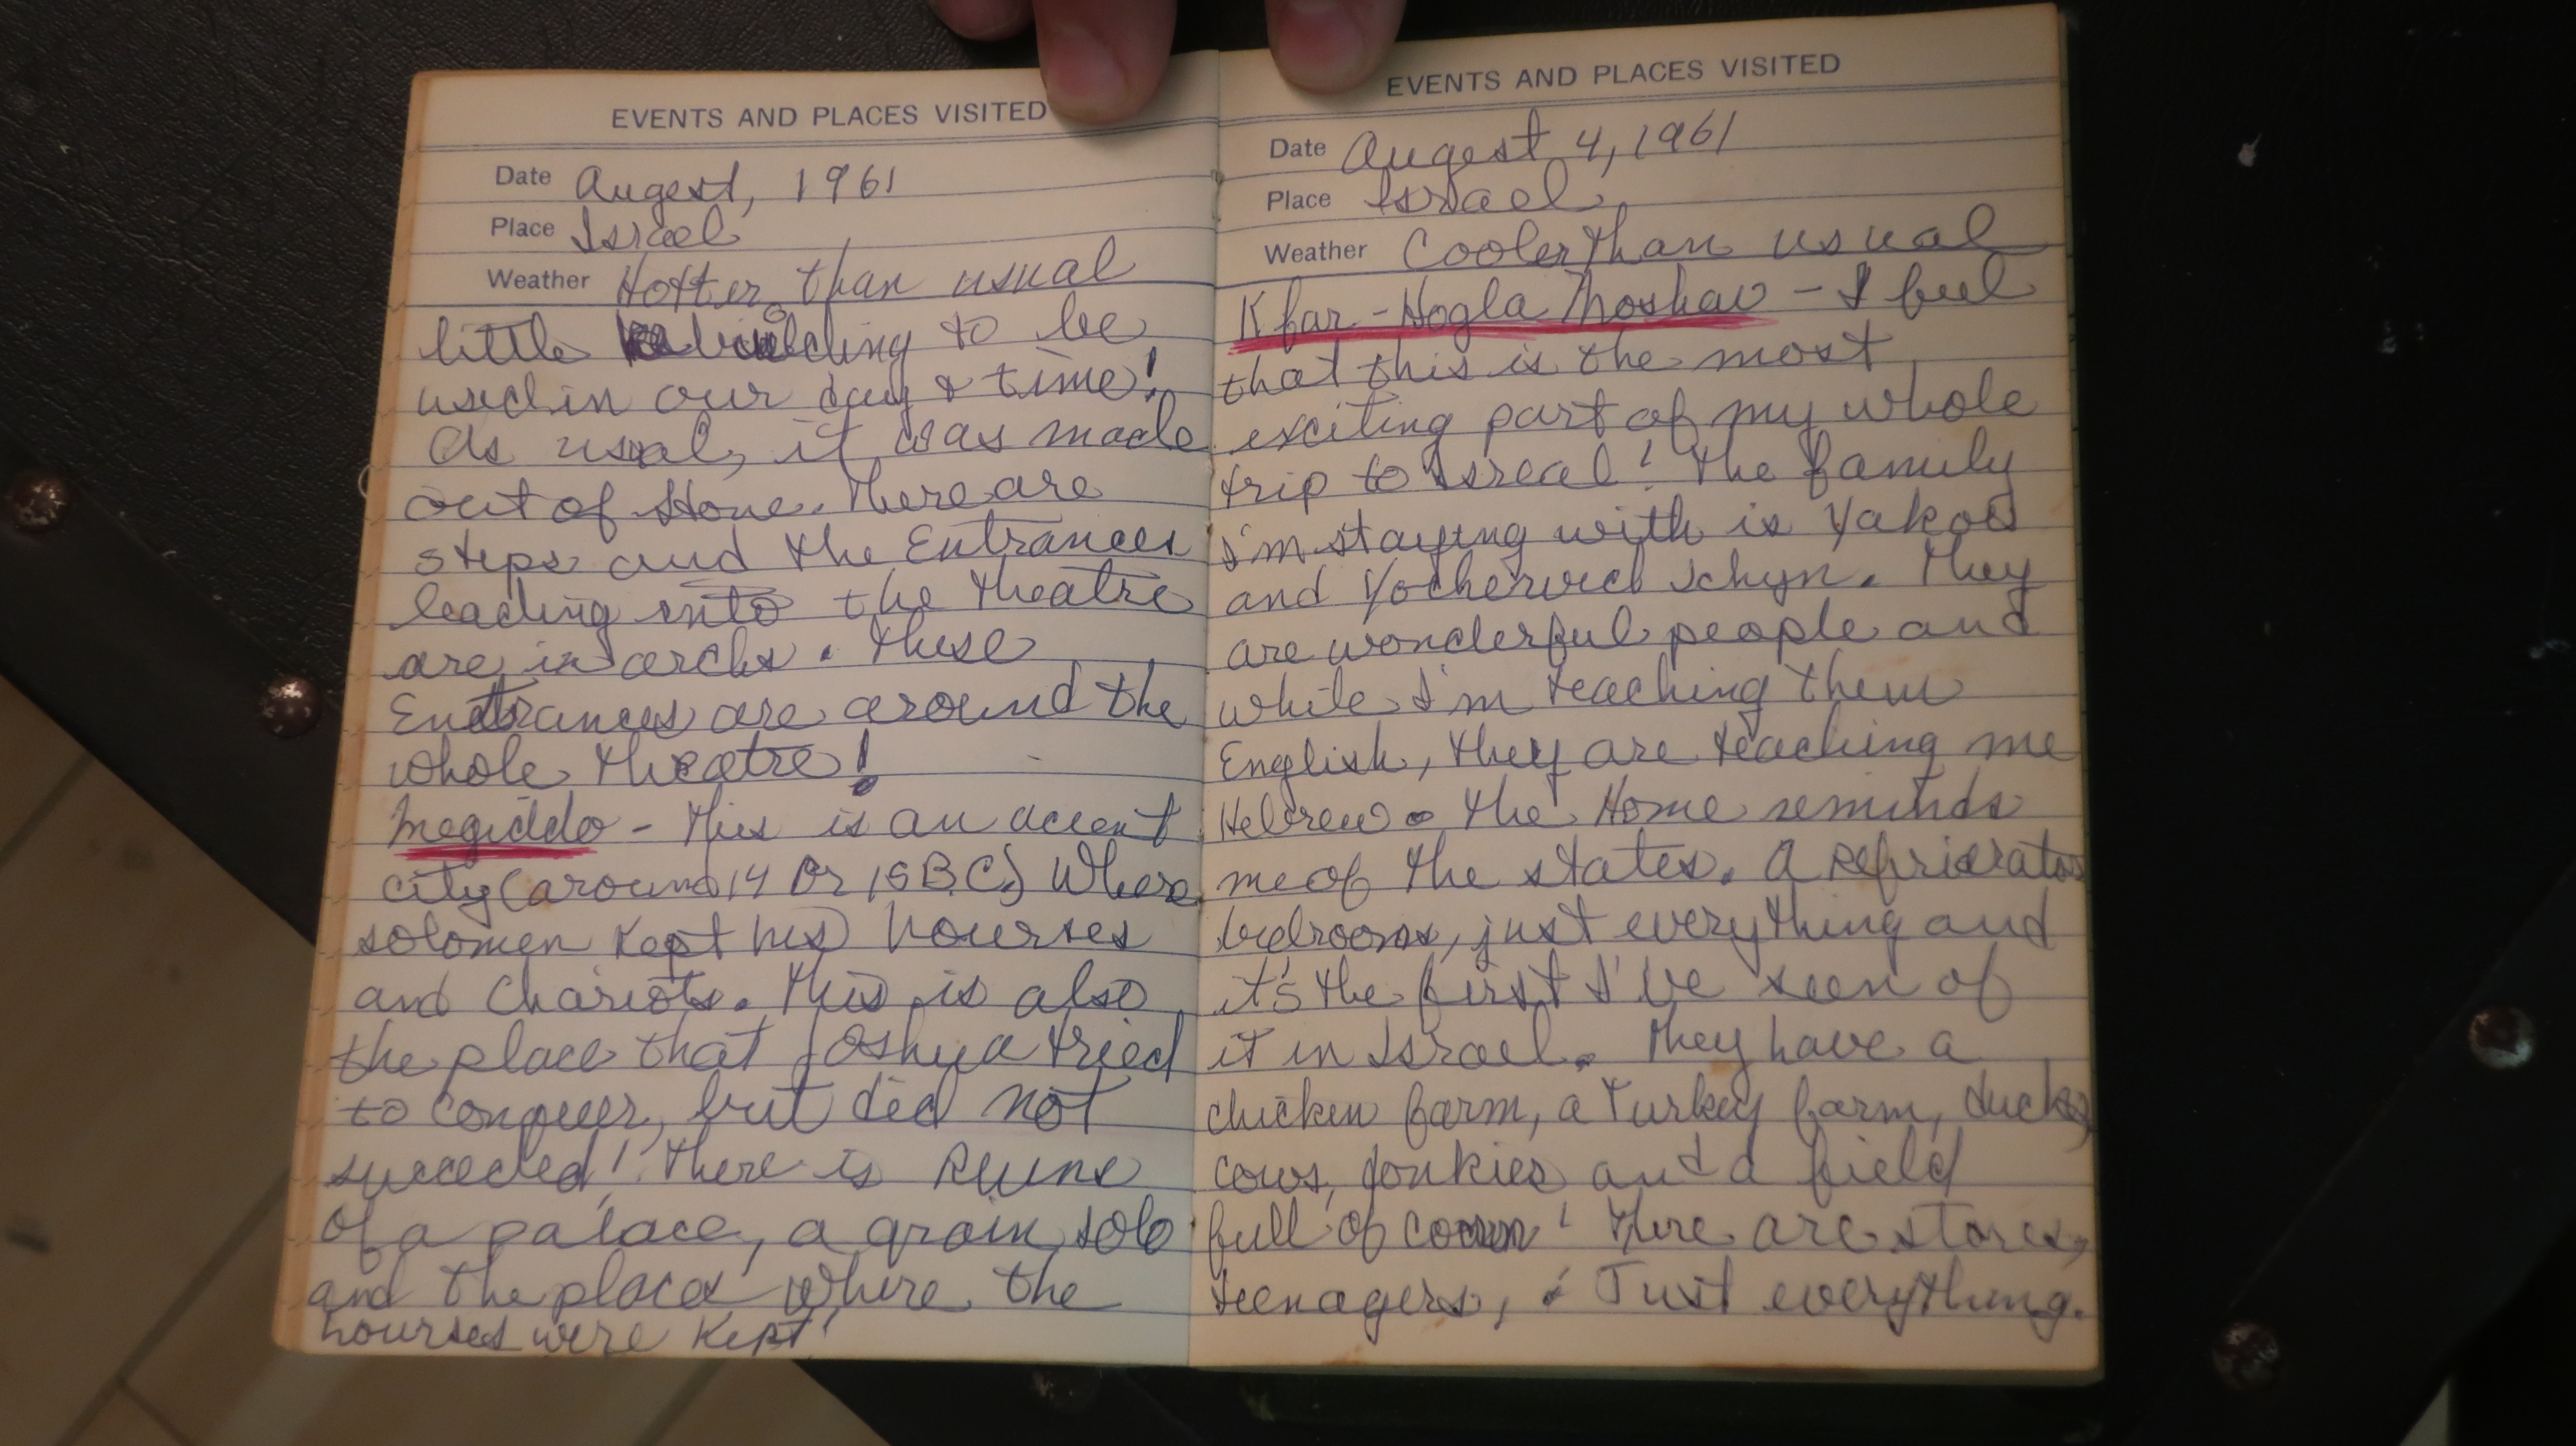 EVENTS AND PLACES VISITED
Date Augest, 1961
Place Israel
Weather Hotter than usual
little rebuilding to be
used in our day & time!
As usual, it was made
out of stone. There are
steps and the Entrances
leading into the theatre
are in archs. These
Entrances are around the
whole theatre!
Megiddo - This is an accent
city (around 14 or 15 B.C.) Where
solomen kept his hourses
and Chariots. This is also
the place that Joshua tried
to conquer, but did not
succeeded! There is Ruins
of a palace, a grain solo
and the places where the
hourses were kept!
EVENTS AND PLACES VISITED
Date Augest 4, 1961
Place Israel
Weather Cooler than usual
Kfar-Hogla Moshav - I feel
that this is the most
exciting part of my whole
trip to Isreal! The family
I'm staying with is Yakov
and Schyn. They
are wonderful people and
while I'm teaching them
English, they are teaching me
Hebrew. The Home reminds
me of the states. A
bedrooms, just everything and
it's the first I've seen of
it in Israel. They have a
chicken farm, a Turkey farm, ducks,
cows, donkies and a field
full of corn! There are stores,
teenagers, & Just everything.